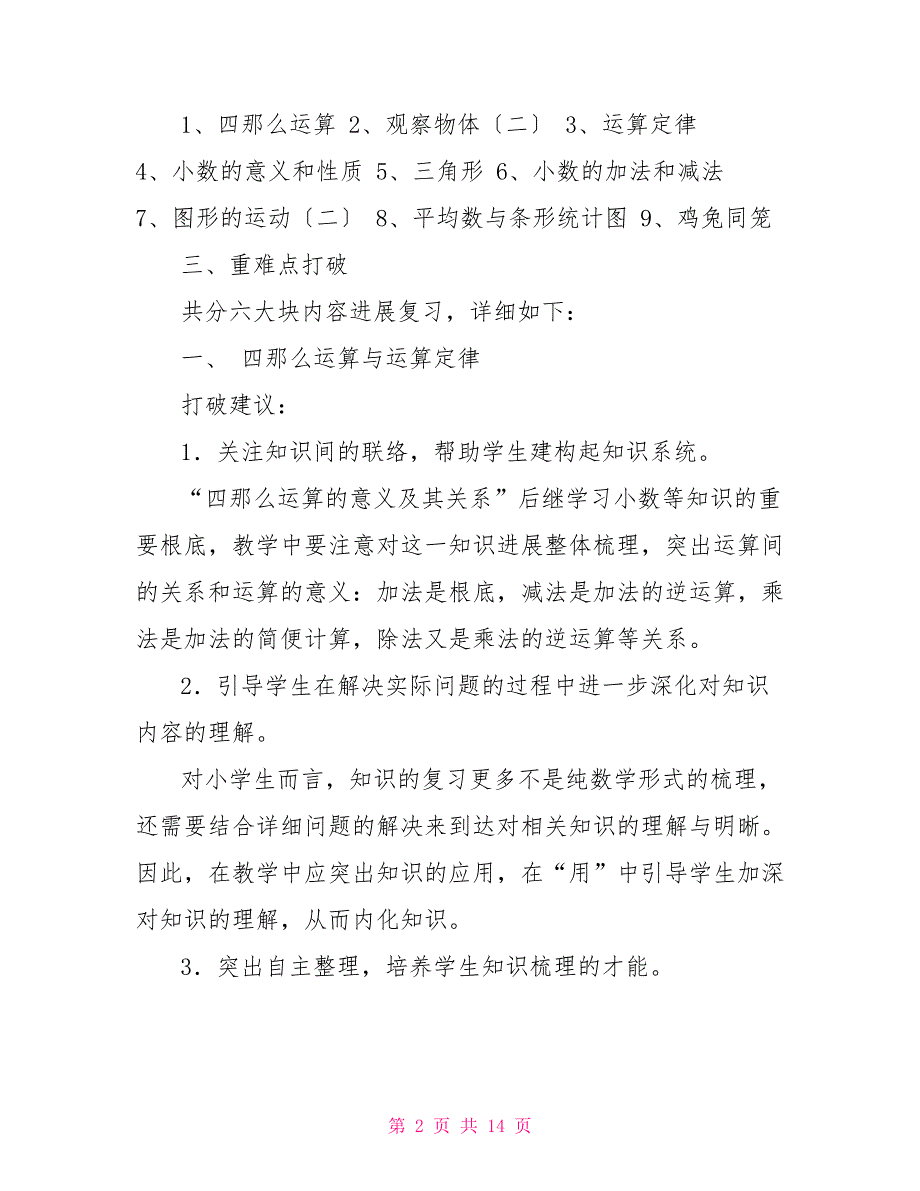 1、四那么运算 2、观察物体〔二〕 3、运算定律
4、小数的意义和性质 5、三角形 6、小数的加法和减法
7、图形的运动〔二〕 8、平均数与条形统计图 9、鸡兔同笼
三、重难点打破
共分六大块内容进展复习，详细如下：
一、 四那么运算与运算定律
打破建议：
1．关注知识间的联络，帮助学生建构起知识系统。
“四那么运算的意义及其关系”后继学习小数等知识的重
要根底，教学中要注意对这一知识进展整体梳理，突出运算间
的关系和运算的意义：加法是根底，减法是加法的逆运算，乘
法是加法的简便计算，除法又是乘法的逆运算等关系。
2．引导学生在解决实际问题的过程中进一步深化对知识
内容的理解。
对小学生而言，知识的复习更多不是纯数学形式的梳理，
还需要结合详细问题的解决来到达对相关知识的理解与明晰。
因此，在教学中应突出知识的应用，在“用”中引导学生加深
对知识的理解，从而内化知识。
3．突出自主整理，培养学生知识梳理的才能。
第 2 页 共 14 页